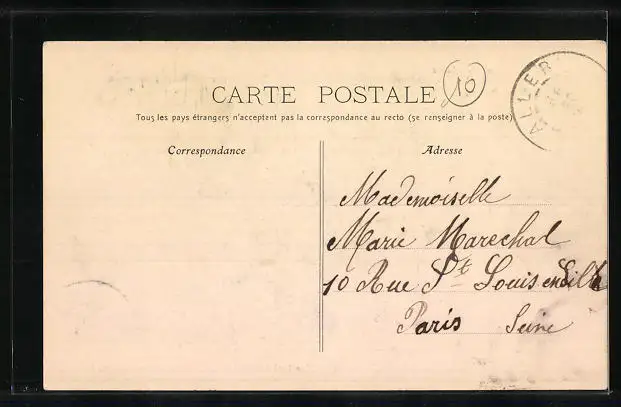 10
ALLER
CARTE POSTALE
Tous les pays étrangers n'acceptent pas la correspondance au recto (se renseigner à la poste)
Correspondance
Adresse
Mademoiselle
Marie Marechal
10 Rue St Louis en
Paris Seine